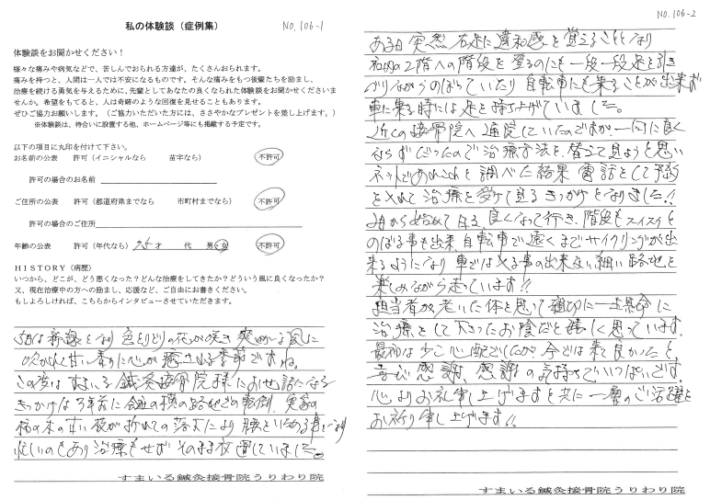 私の体験談（症例集）
NO.106-1
体験談をお聞かせください！
様々な痛みや病気などで、苦しんでおられる方達が、たくさんおられます。
痛みを持つと、人間は一人では不安になるものです。そんな痛みをもつ後輩たちを励まし、
治療を続ける勇気を与えるために、先輩としてあなたの良くなられた体験談をお聞かせくださいま
せんか。希望をもてると、人は奇跡のような回復を見せることもあります。
ぜひご協力お願いします。（ご協力いただいた方には、ささやかなプレゼントを差し上げます。）
※体験談は、待合いに設置する他、ホームページ等にも掲載する予定です。
以下の項目に丸印を付けて下さい。
お名前の公表　許可（イニシャルなら　苗字なら）　不許可
許可の場合のお名前
ご住所の公表　許可（都道府県までなら　市町村までなら）　不許可
許可の場合のご住所
年齢の公表　許可（年代なら）　才　代　男・女　不許可
ＨＩＳＴＯＲＹ（病歴）
いつから、どこが、どう悪くなった？どんな治療をしてきたか？どういう風に良くなったか？
又、現在治療中の方への励まし、応援など、ご自由にお書きください。
もしよろしければ、こちらからインタビューさせていただきます。
新緑となり色とりどりの花が咲き爽やかな風に
吹かれて甘い香りに心が癒される季節ですね。
この度はすまいる鍼灸接骨院様にお世話になる
きっかけは3年前に会社の横の路地での転倒、実家の
柿の木の太い枝が折れての落下により腰といため事になり
忙しいのもあり治療もせずそのまま放置していました。
すまいる鍼灸接骨院うりわり院
NO.106-2
ある日突然右足に違和感を覚えることとなり
2階への階段を登るのにも一段一段足を引き
ながらのぼっていたり自転車にも乗ることが出来ず
車に乗る時には足を持ち上げていました。
近くの接骨院へ通院していたのですが、一向に良く
ならずだったので治療方法を替えて見ようと思い
ネットであれこれを調べた結果電話をして予約
をとれて治療を受けて見るきっかけとなりました!!
良くなって行き、階段もスイスイと
のぼる事も出来自転車で遠くまでサイクリングが出
来るようになり車では入る事の出来ない細い路地を
楽しみながら走っています!!
担当者が老いた体を思って適切に一生懸命に
治療をして下さったお陰だと嬉しく思っています。
最初は少し心配でしたが、今では来て良かったと
喜び感謝、感謝の気持でいっぱいです。
心よりお礼申し上げますと共に一層のご活躍を
お祈り申し上げます!!
すまいる鍼灸接骨院うりわり院